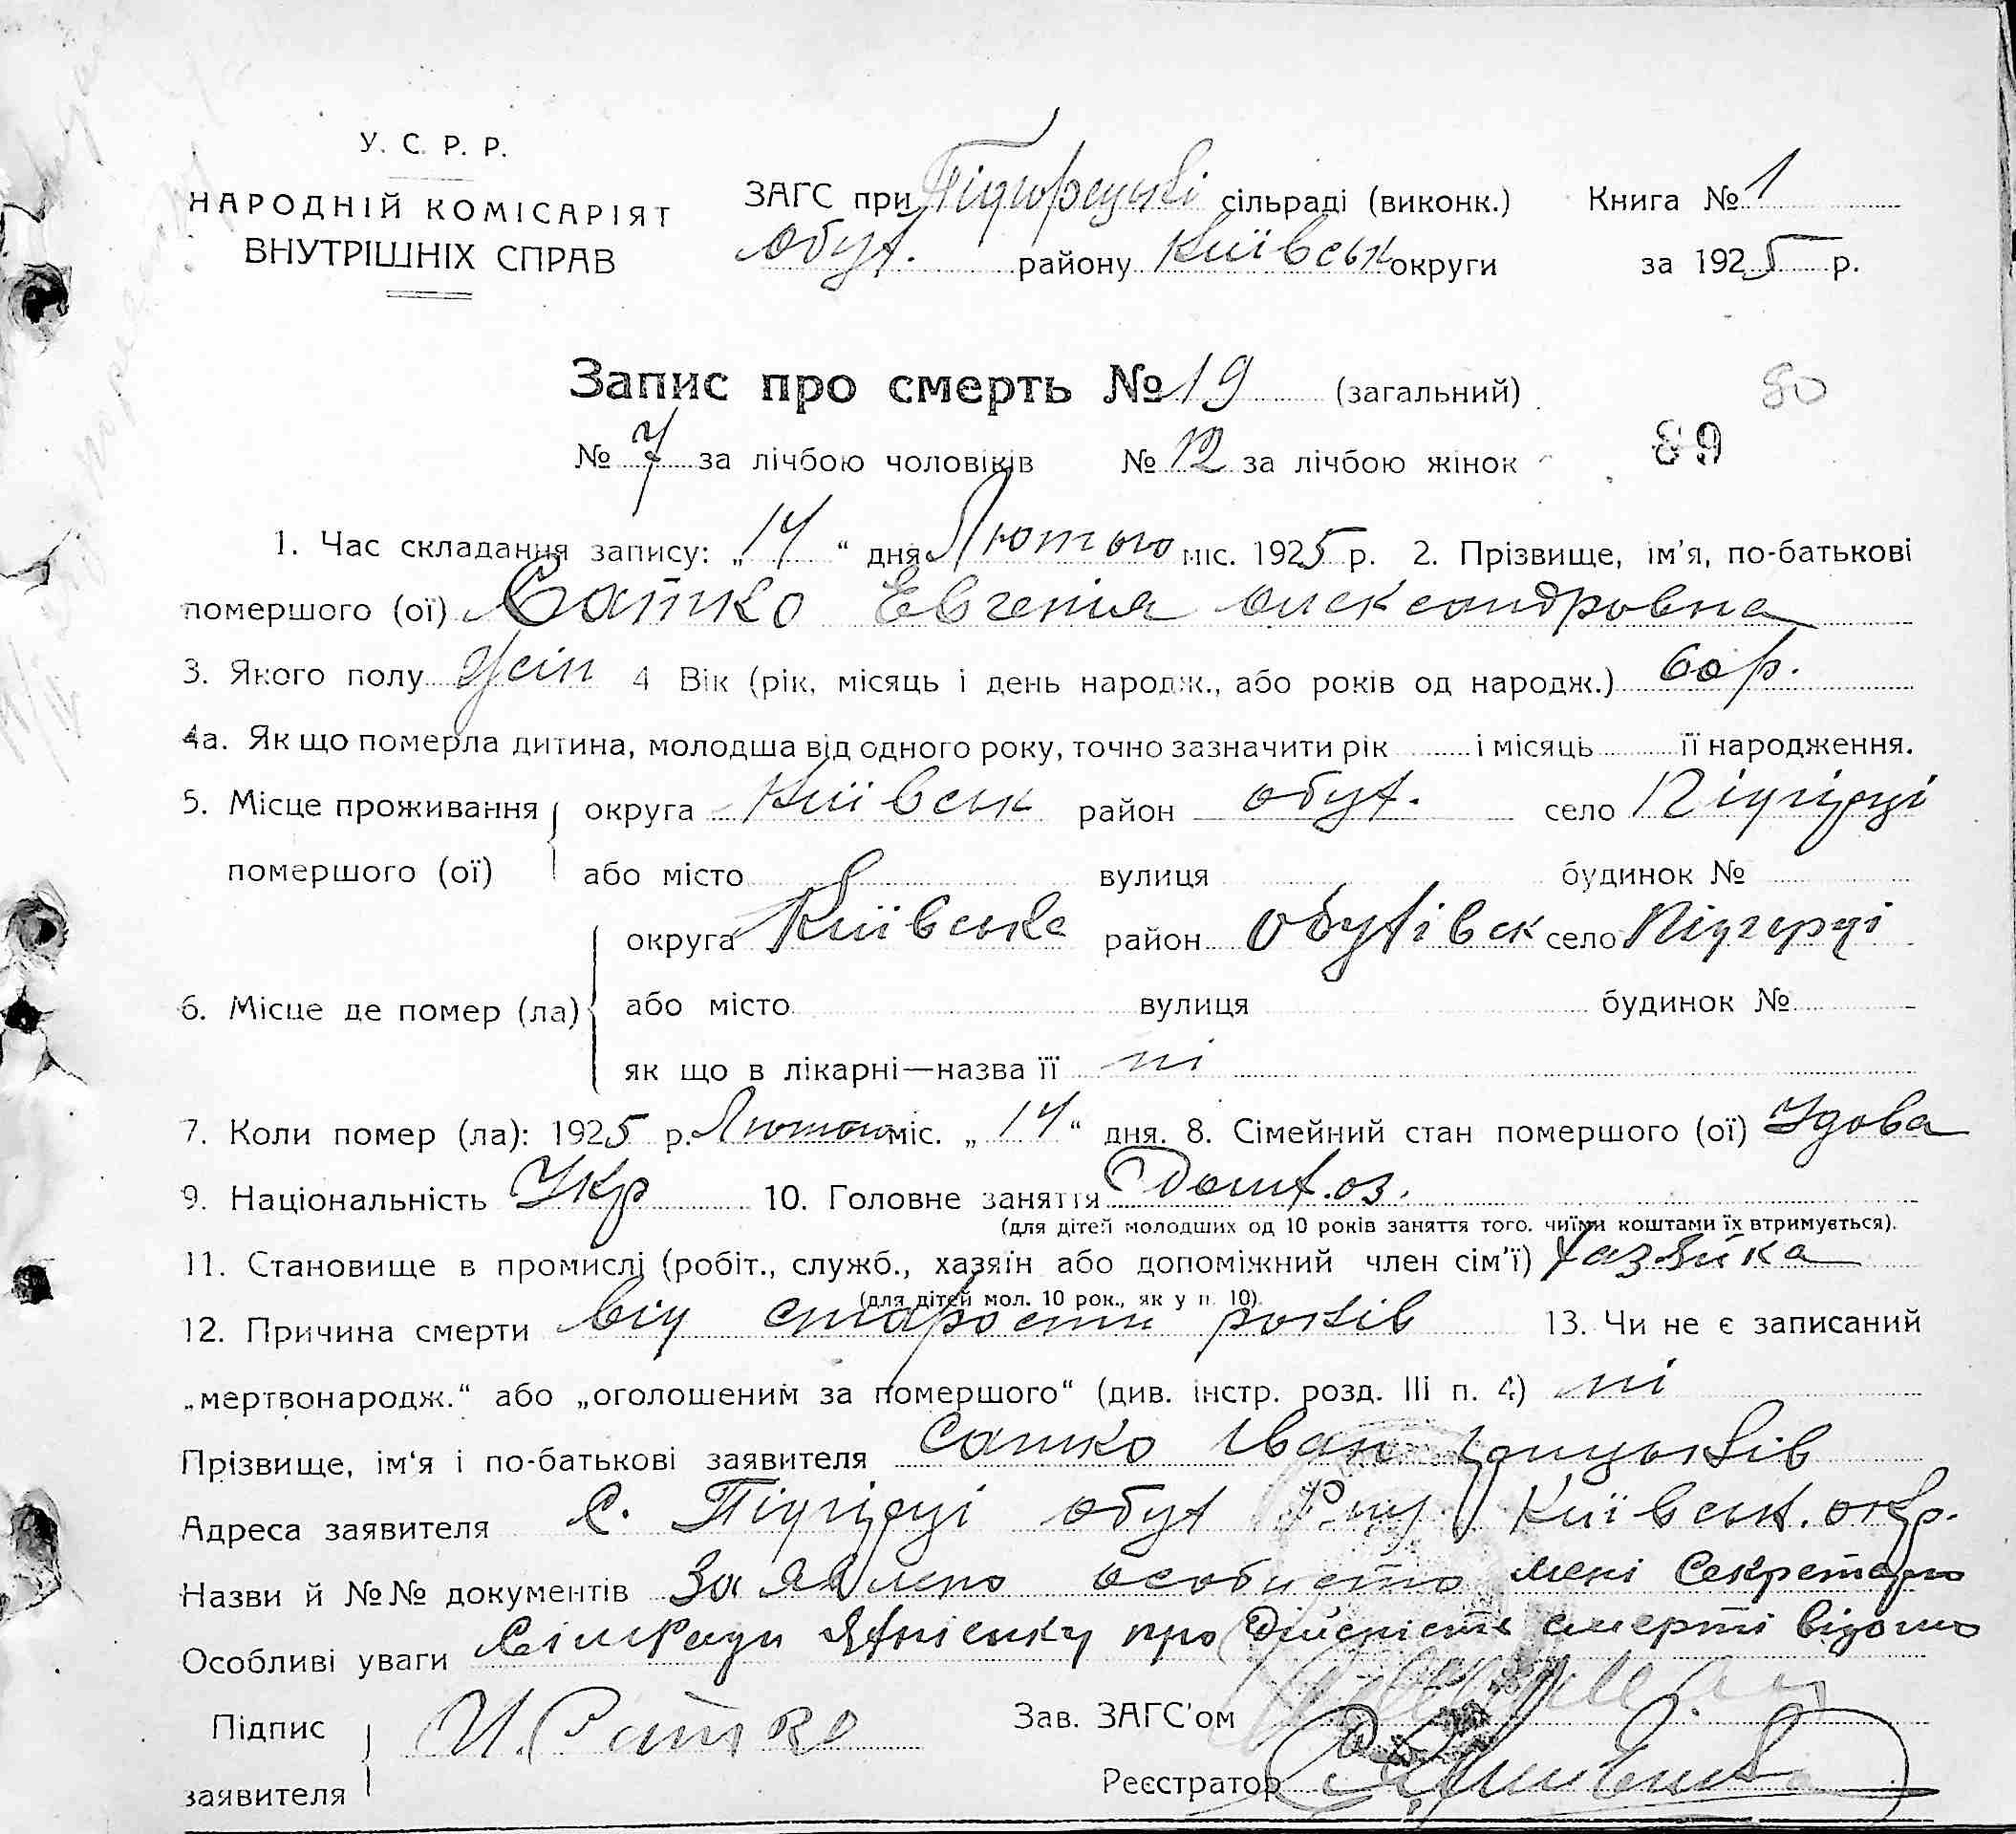 У. С. Р. Р.
НАРОДНІЙ КОМІСАРІЯТ
ВНУТРІШНІХ СПРАВ
ЗАГС при Підгорецькі сільраді (виконк.) Книга № 1
Обух. району Київськ округи за 1925 р.
Запис про смерть № 19 (загальний)
80
№ 7 за лічбою чоловіків № 12 за лічбою жінок
89
1. Час складання запису: „14“ дня Лютого міс. 1925 р. 2. Прізвище, ім'я, по-батькові
помершого (ої) Сатко Евгенія Олександровна
3. Якого полу жін 4 Вік (рік, місяць і день народж., або років од народж.) 60 р.
4а. Як що померла дитина, молодша від одного року, точно зазначити рік і місяць її народження.
5. Місце проживання округа Київськ район Обух. село Підгірці
помершого (ої) або місто вулиця будинок №
округа Київська район Обухівск село Підгерці
6. Місце де помер (ла) або місто вулиця будинок №
як що в лікарні—назва її ні
7. Коли помер (ла): 1925 р. Лютого міс. „14“ дня. 8. Сімейний стан помершого (ої) Удова
9. Національність Укр 10. Головне заняття
(для дітей молодших од 10 років заняття того, чиїми коштами їх втримується).
11. Становище в промислі (робіт., служб., хазяїн або допоміжний член сім'ї) хазяйка
(для дітей мол. 10 рок., як у п. 10)
12. Причина смерти від старости років 13. Чи не є записаний
„мертвонародж.“ або „оголошеним за помершого“ (див. інстр. розд. III п. 4) ні
Прізвище, ім'я і по-батькові заявителя Сатко Іван
Адреса заявителя С. Підгірці Обух Рну Київськ. окр.
Назви й №№ документів Заявлено особисто мені Секретарю
Особливі уваги Сілради про дійсність смерті відомо
Підпис
заявителя И. Сатко
Зав. ЗАГС'ом
Реєстратор